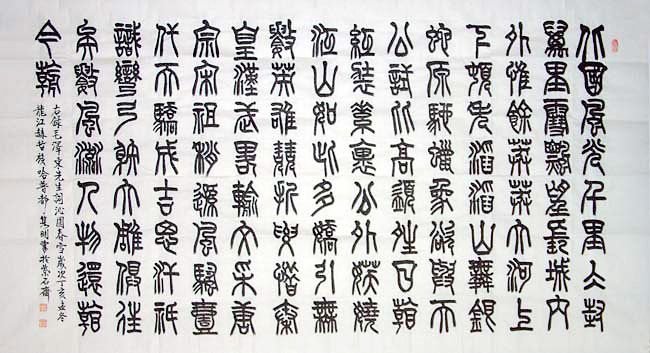 北國風光千里冰封
萬里雪飄望長城內
外惟餘莽莽大河上
下頓失滔滔山舞銀
蛇原馳蠟象欲與天
公試比高須晴日看
紅裝素裹分外妖嬈
江山如此多嬌引無
數英雄競折腰惜秦
皇漢武略輸文采唐
宗宋祖稍遜風騷壹
代天驕成吉思汗祇
識彎弓射大雕俱往
矣數風流人物還看
今朝
錄毛澤東先生詞沁園春雪歲次丁亥孟冬
龍江赫哲族哈普都·雋明書於紫石齋